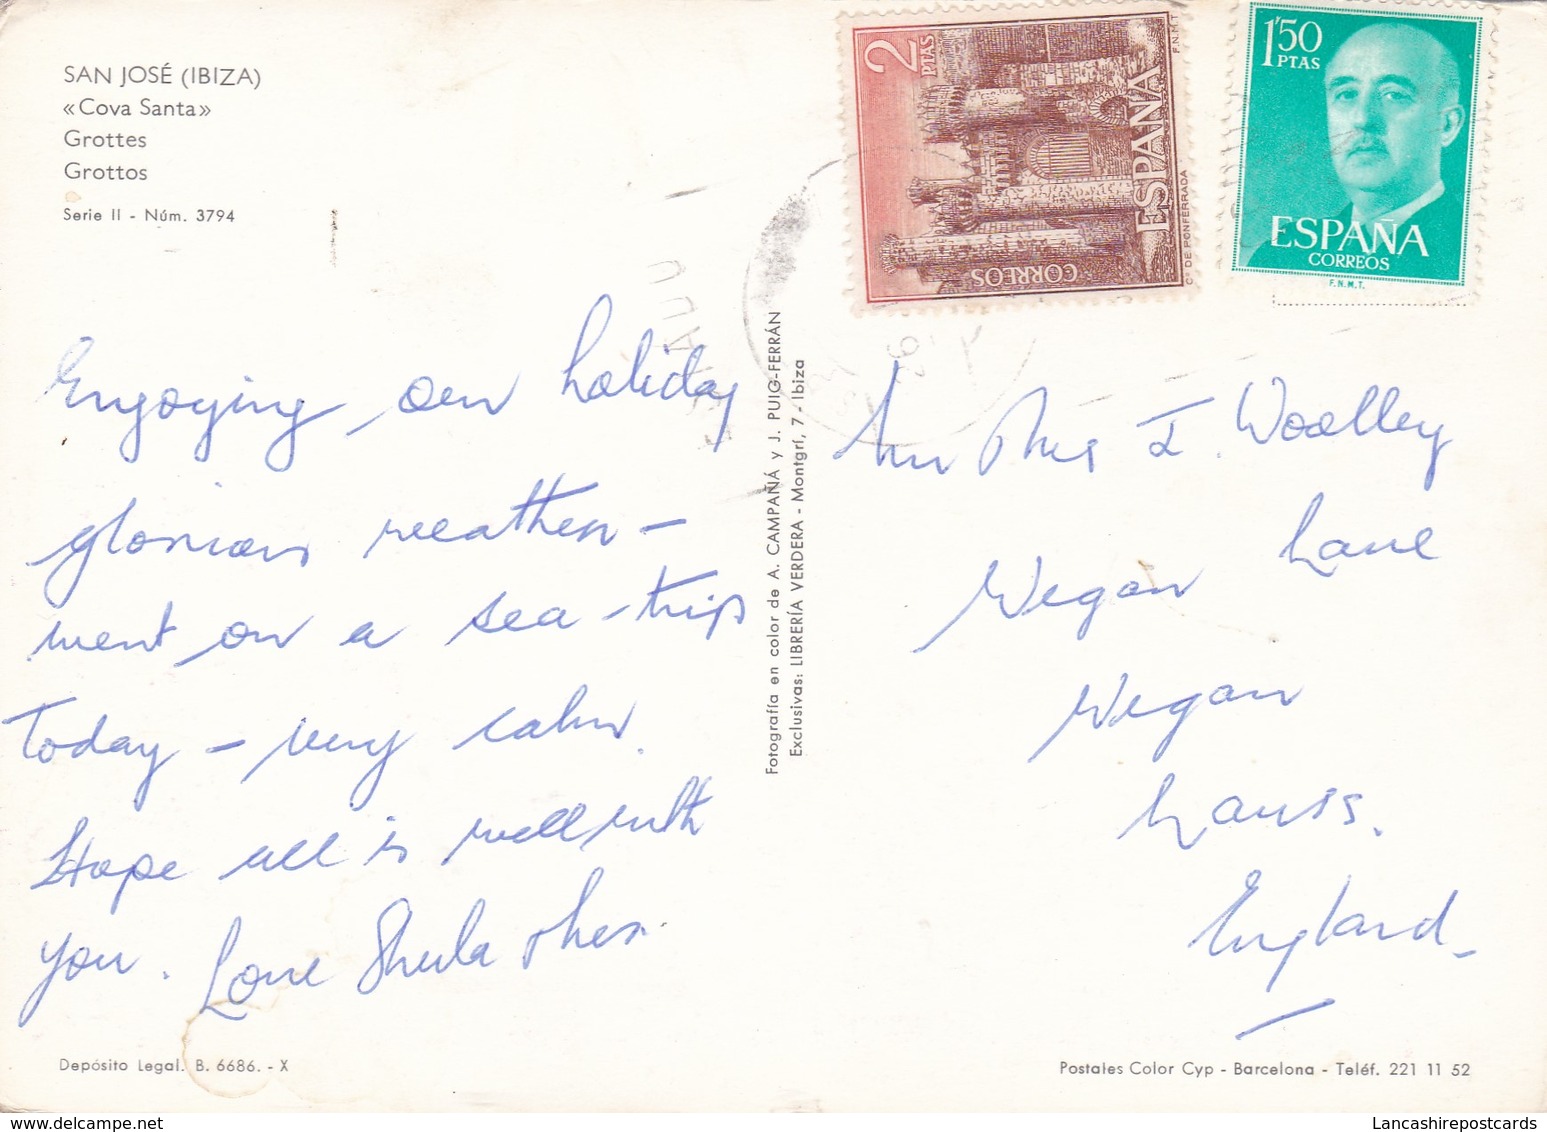 SAN JOSÉ (IBIZA)
«Cova Santa»
Grottes
Grottos
Serie II - Núm. 3794
2 PTAS
ESPAÑA
CORREOS
Cº DE PONFERRADA
F.N.M.T
1'50
PTAS
ESPAÑA
CORREOS
F.N.M.T.
Enjoying our holiday
glorious weather –
went on a sea-trip
today – very calm.
Hope all is well with
you. Love Sheila
Fotografía en color de A. CAMPAÑÁ y J. PUIG-FERRÁN
Exclusivas: LIBRERÍA VERDERA - Montgrí, 7 - Ibiza
Mrs I. Woolley
Wegan Lane
Wegan
Lancs.
England
Depósito Legal. B. 6686. - X
Postales Color Cyp - Barcelona - Teléf. 221 11 52
Lancashirepostcards